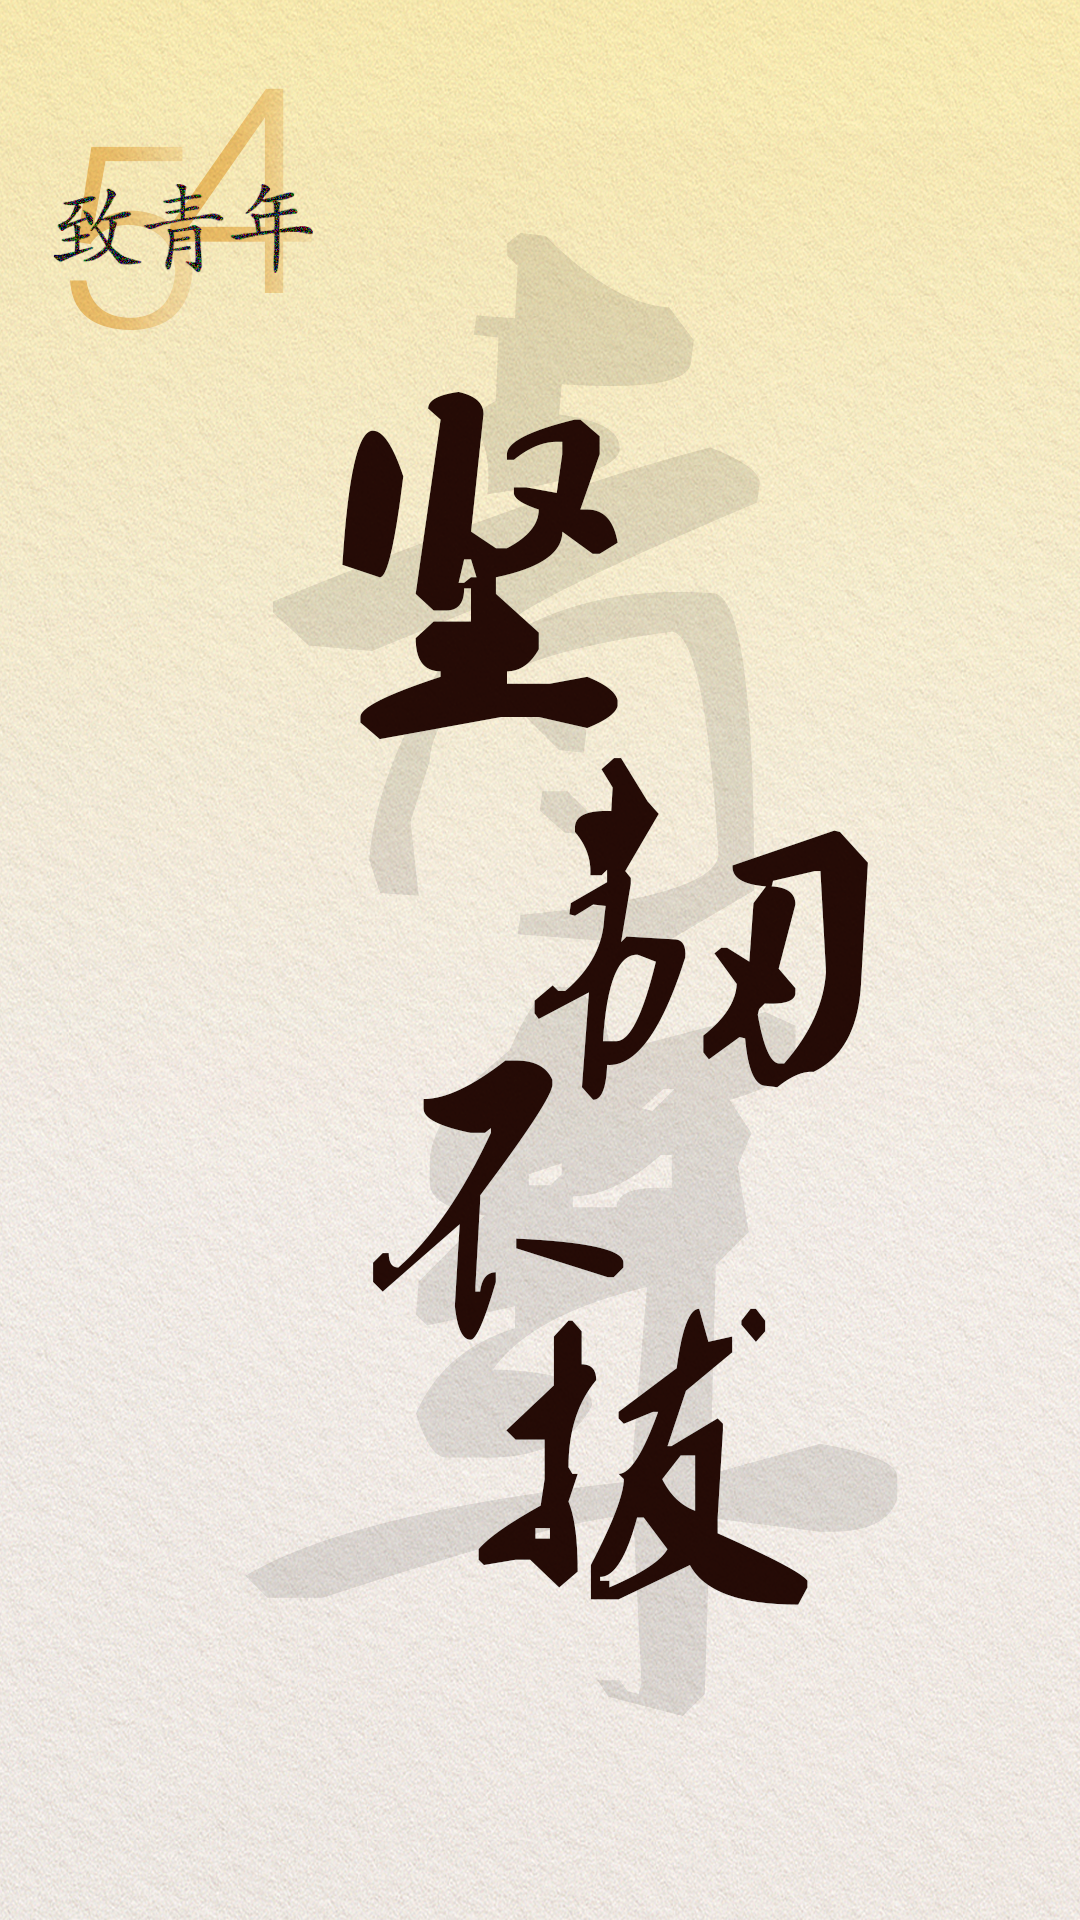 54
致青年
青年
坚韧不拔